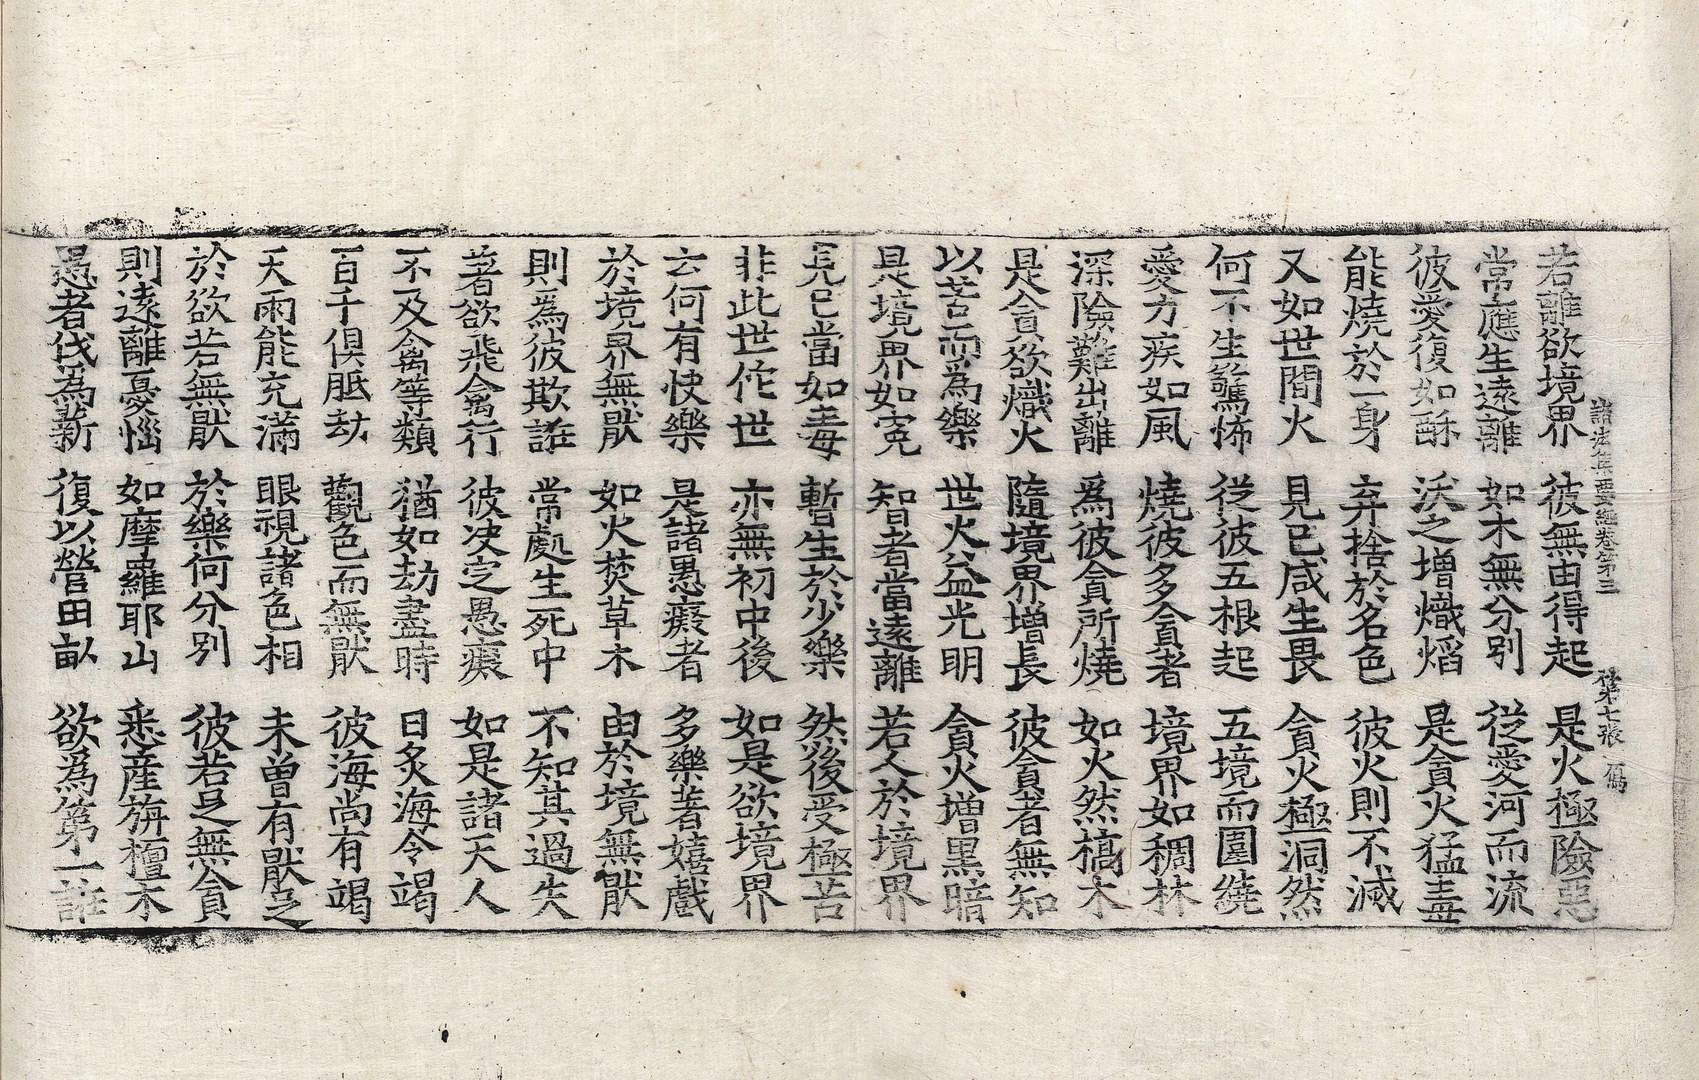 諸法集要經卷第三　第七張
若離欲境界　彼無由得起　是火極險惡
常應生遠離　如木無分別　從愛河而流
彼愛復如酥　沃之增熾焰　是貪火猛毒
能燒於一身　弃捨於名色　彼火則不滅
又如世間火　見已咸生畏　貪火極洞然
何不生驚怖　從彼五根起　五境而圍繞
愛力疾如風　燒彼多貪者　境界如稠林
深險難出離　為彼貪所燒　如火然槁木
是貪欲熾火　隨境界增長　彼貪者無知
以苦而為樂　世火益光明　貪火增黑暗
是境界如寃　智者當遠離　若人於境界
見已當如毒　暫生於少樂　然後受極苦
非此世佗世　亦無初中後　如是欲境界
云何有快樂　是諸愚癡者　多樂著嬉戲
於境界無猒　如火焚草木　由於境無猒
則為彼欺誑　常處生死中　不知其過失
著欲飛禽行　彼决定愚癡　如是諸天人
不及禽等類　猶如劫盡時　日炙海令竭
百千俱胝劫　觀色而無猒　彼海尚有竭
天雨能充滿　眼視諸色相　未曾有猒足
於欲若無猒　於樂何分別　彼若足無貪
則遠離憂惱　如摩羅耶山　悉產旃檀木
愚者伐為薪　復以營田畝　欲為第一誑